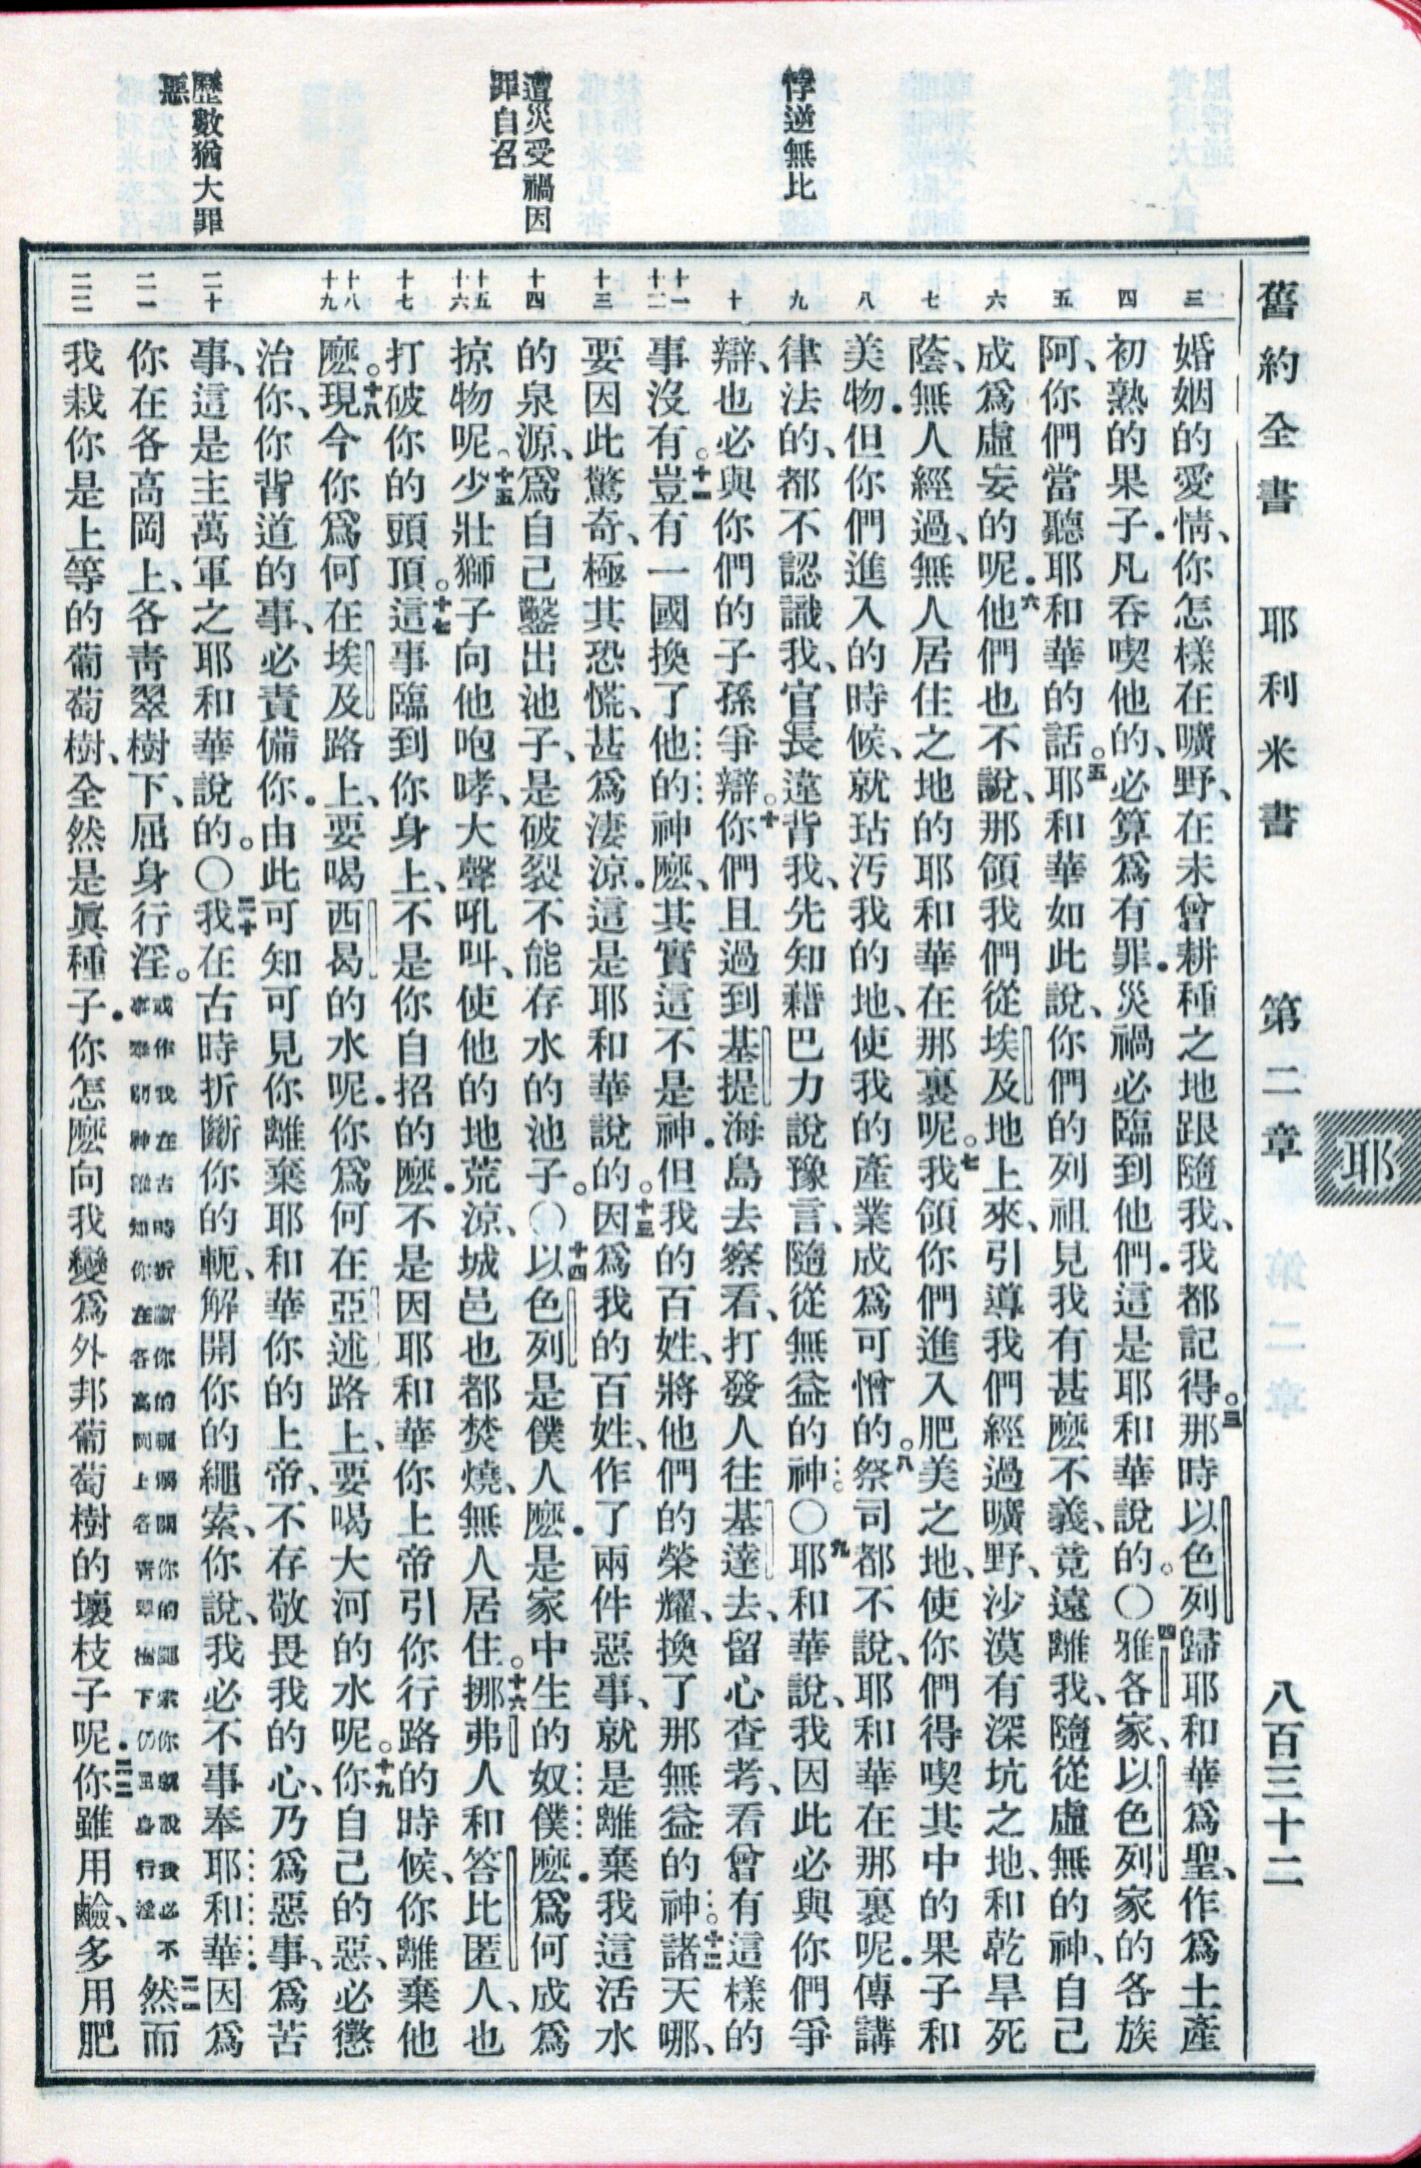 舊約全書　耶利米書　第二章　八百三十二
耶
悖逆無比
遭災受禍因
罪自召
歷數猶大罪
惡
三
四
五
六
七
八
九
十
十一
十二
十三
十四
十五
十六
十七
十八
十九
二十
二一
二二
婚姻的愛情、你怎樣在曠野、在未曾耕種之地跟隨我、我都記得。三那時以色列歸耶和華爲聖、作爲土產
初熟的果子．凡吞喫他的、必算爲有罪．災禍必臨到他們．這是耶和華說的。〇四雅各家、以色列家的各族
阿、你們當聽耶和華的話。五耶和華如此說、你們的列祖見我有甚麼不義、竟遠離我、隨從虛無的神、自己
成爲虛妄的呢．六他們也不說、那領我們從埃及地上來、引導我們經過曠野、沙漠有深坑之地、和乾旱死
蔭、無人經過、無人居住之地的耶和華在那裏呢。七我領你們進入肥美之地、使你們得喫其中的果子和
美物．但你們進入的時候、就玷汚我的地、使我的產業成爲可憎的。八祭司都不說、耶和華在那裏呢．傳講
律法的、都不認識我、官長違背我、先知藉巴力說豫言、隨從無益的神。〇九耶和華說、我因此必與你們爭
辯、也必與你們的子孫爭辯。十你們且過到基提海島去察看、打發人往基達去、留心查考、看曾有這樣的
事沒有。十一豈有一國換了他的神麼、其實這不是神．但我的百姓、將他們的榮耀、換了那無益的神。十二諸天哪、
要因此驚奇、極其恐慌、甚爲淒涼．這是耶和華說的。十三因爲我的百姓、作了兩件惡事、就是離棄我這活水
的泉源、爲自己鑿出池子、是破裂不能存水的池子。〇十四以色列是僕人麼．是家中生的奴僕麼．爲何成爲
掠物呢。十五少壯獅子向他咆哮、大聲吼叫、使他的地荒涼、城邑也都焚燒、無人居住。十六挪弗人和答比匿人、也
打破你的頭頂。十七這事臨到你身上、不是你自招的麼．不是因耶和華你上帝引你行路的時候、你離棄他
麼。十八現今你爲何在埃及路上、要喝西曷的水呢．你爲何在亞述路上、要喝大河的水呢。十九你自己的惡、必懲
治你、你背道的事、必責備你．由此可知可見你離棄耶和華你的上帝、不存敬畏我的心、乃爲惡事、爲苦
事、這是主萬軍之耶和華說的。〇二十我在古時折斷你的軛、解開你的繩索、你說、我必不事奉耶和華．因爲
你在各高岡上、各靑翠樹下、屈身行淫。或作我在古時折斷你的軛解開你的繩索你就說我必不事奉別神誰知你在各高岡上各靑翠樹下仍屈身行淫二一然而
我栽你是上等的葡萄樹、全然是眞種子．你怎麼向我變爲外邦葡萄樹的壞枝子呢．二二你雖用鹼、多用肥